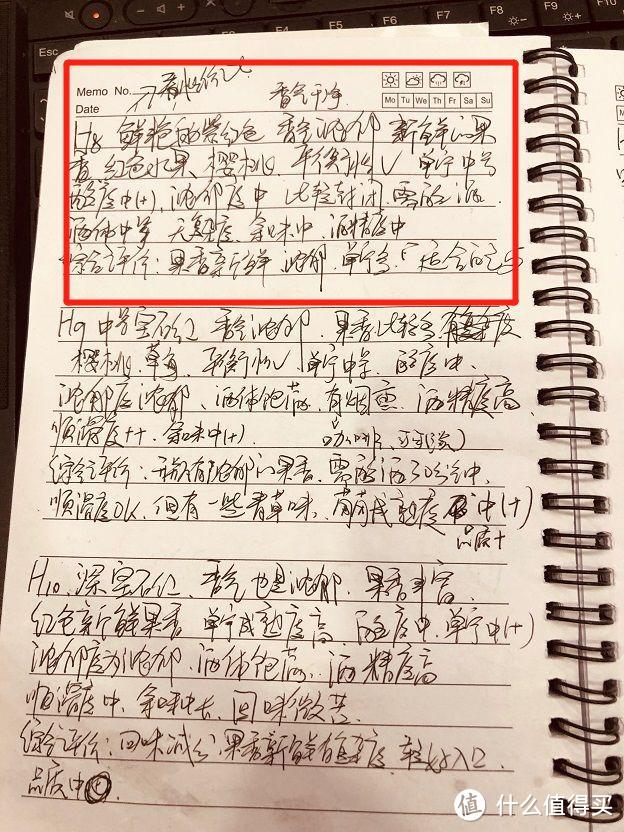 Esc F6 F7 F8 F9 F10
Memo No.
香气干净
Date
Mo Tu We Th Fr Sa Su
H8 鲜艳的紫红色 香气浓郁 新鲜的果
香 红色水果、樱桃、平衡性V 单宁中等
酸度中(+)、浓郁度中 比较封闭、需醒酒
酒体中等 余味中、酒精度中
综合评价: 果香新鲜 浓郁、单宁
H9 中等宝石红 香气浓郁、果香比较
樱桃、草莓、平衡性V 单宁中等、酸度中、
浓郁度浓郁、酒体饱满、有烟熏、酒精度高、
顺滑度++ 余味中(+)、咖啡、
综合评价: 浓郁的果香、需醒酒30分钟、
顺滑度OK、但有一些青草味、葡萄成熟度 中(+)
品质+
H10、深宝石红、香气也是浓郁、果香丰富
红色新鲜果香 单宁成熟度高、酸度中、单宁中(+)
浓郁度为浓郁、酒体饱满、酒精度高
顺滑度中、余味中长、回味微苦、
综合评价: 回味减分、果香新鲜 入口
品质中(+)
值 什么值得买